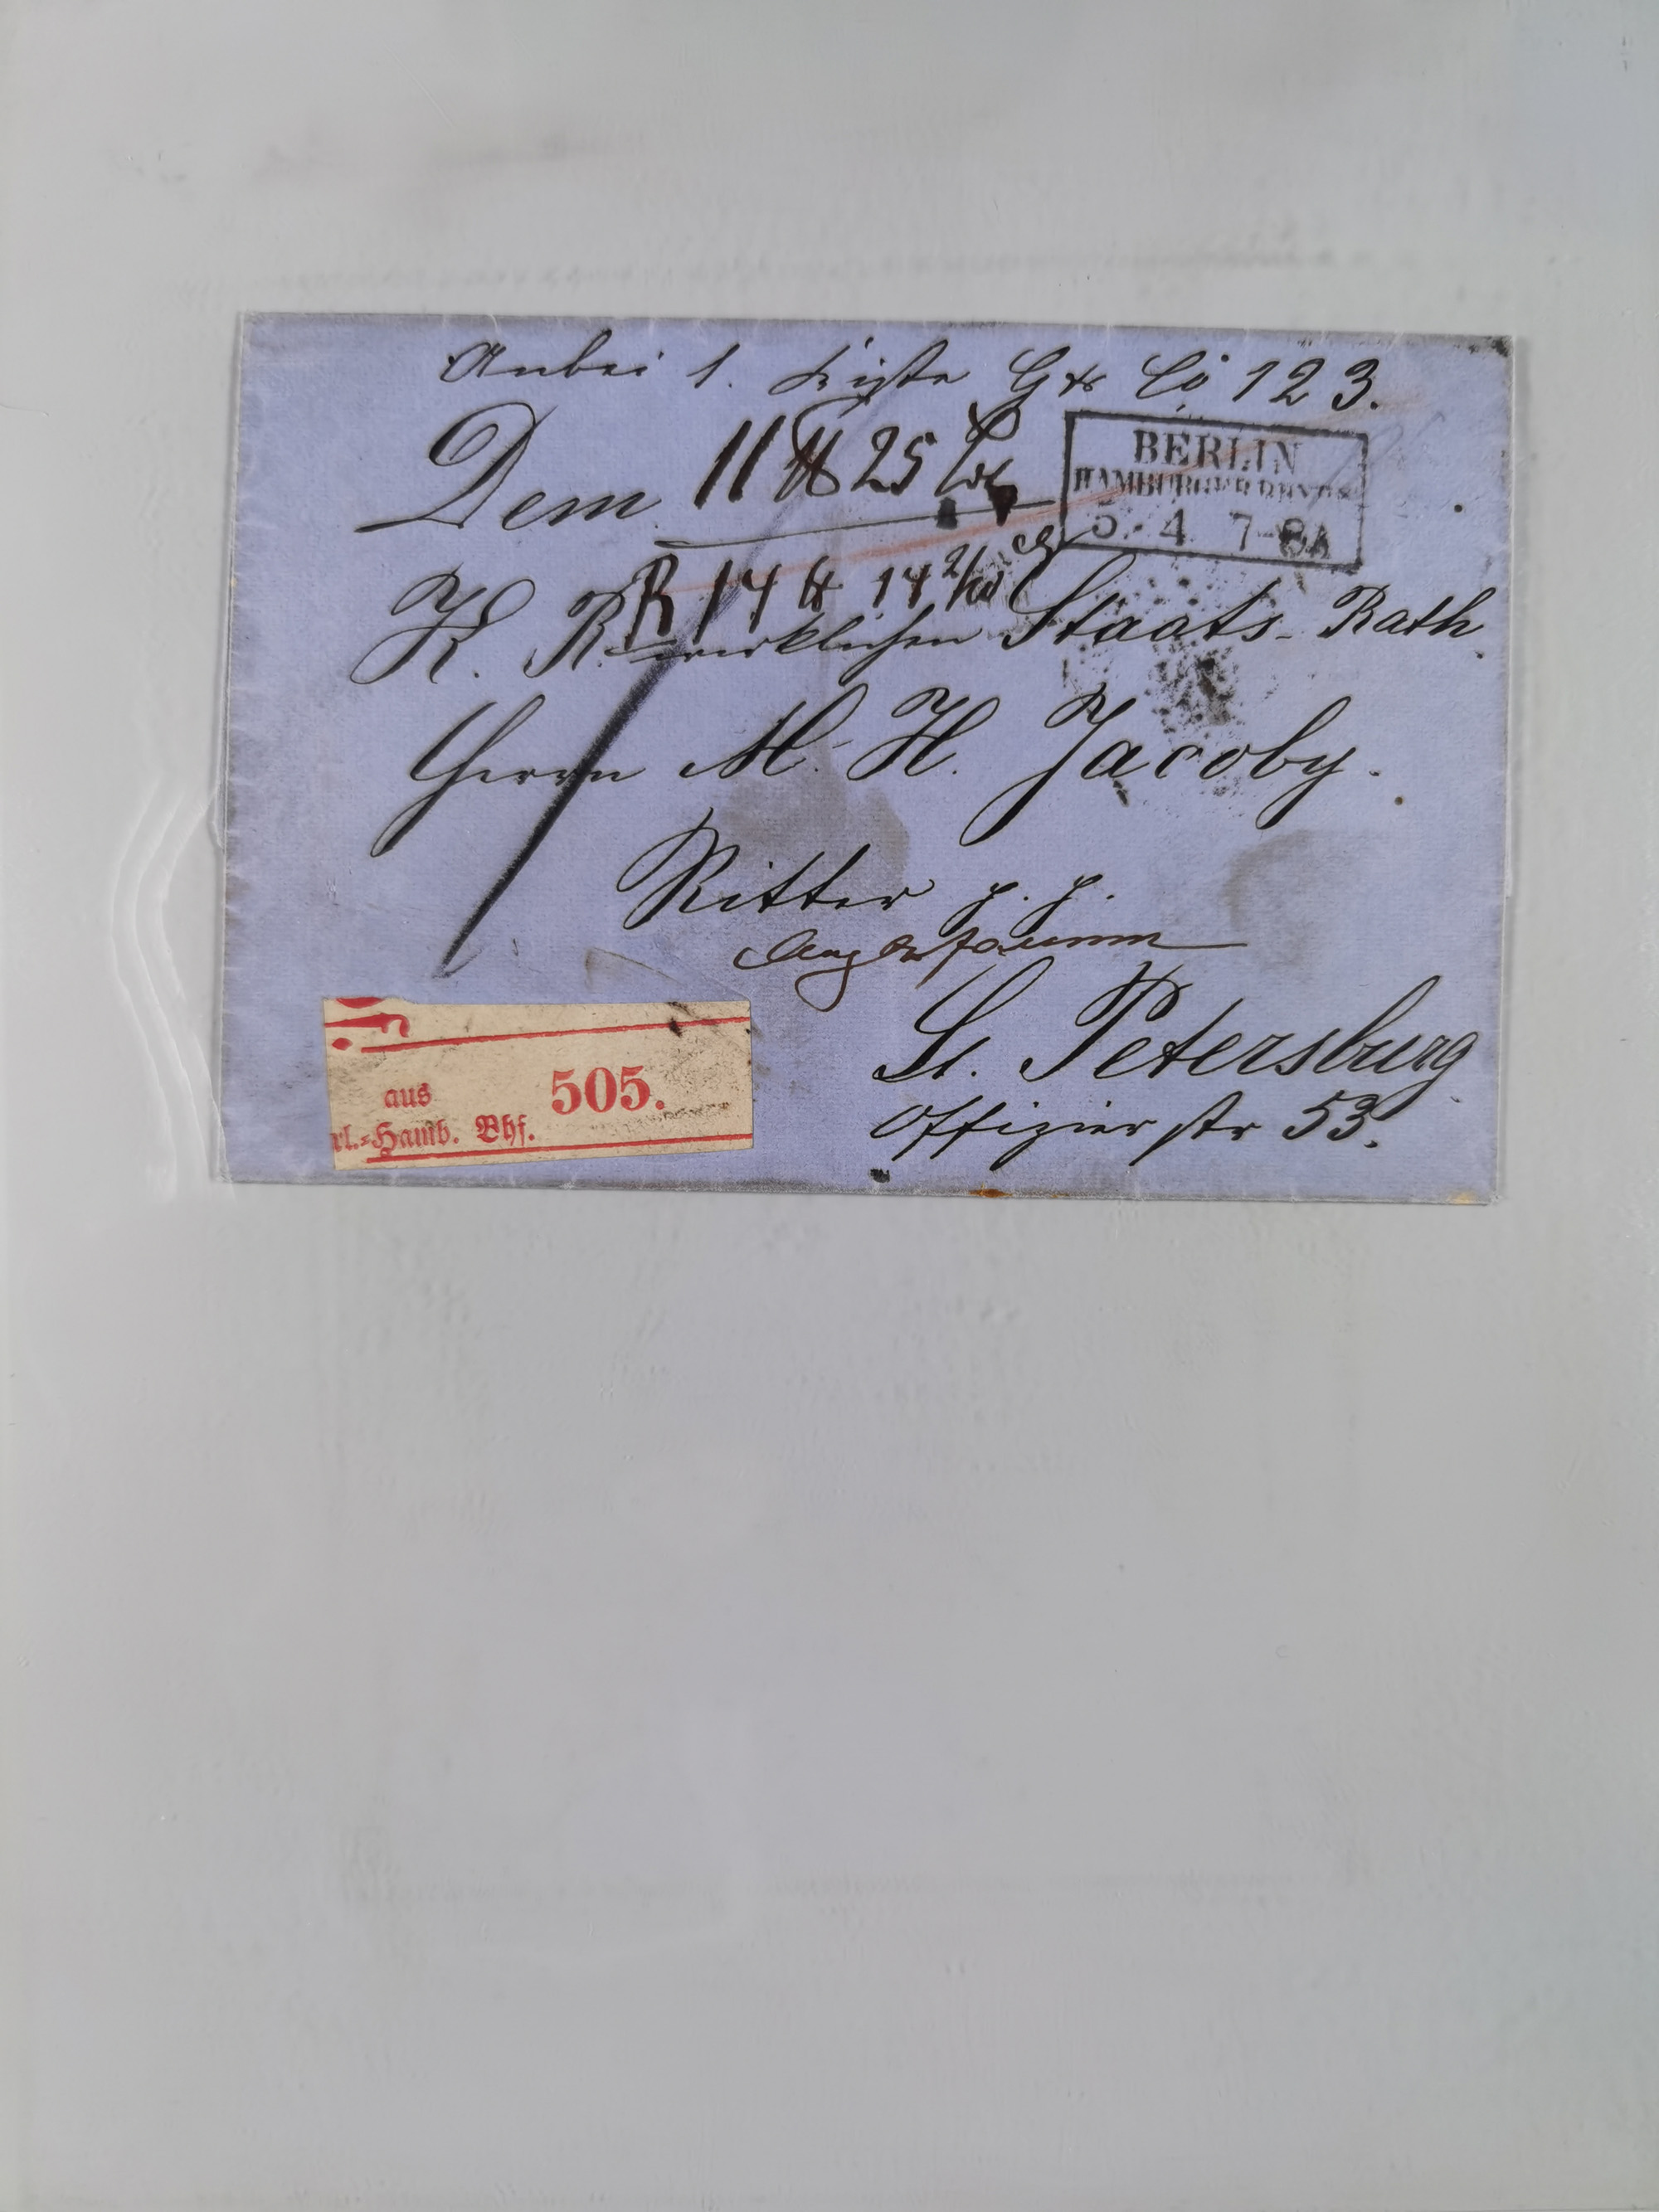 Anbei 1. Kiste G & Co 123.
BERLIN
HAMBURGER BHNF
5. 4 7-8A
Dem 11 ℔ 25 Lot
R 14 ℔ 14 2/10
K. R. wirklichen Staats-Rath
Herrn M. H. Jacoby.
Ritter p. p.
St. Petersburg
Offizier str 53.
aus 505.
rl.-Hamb. Bhf.